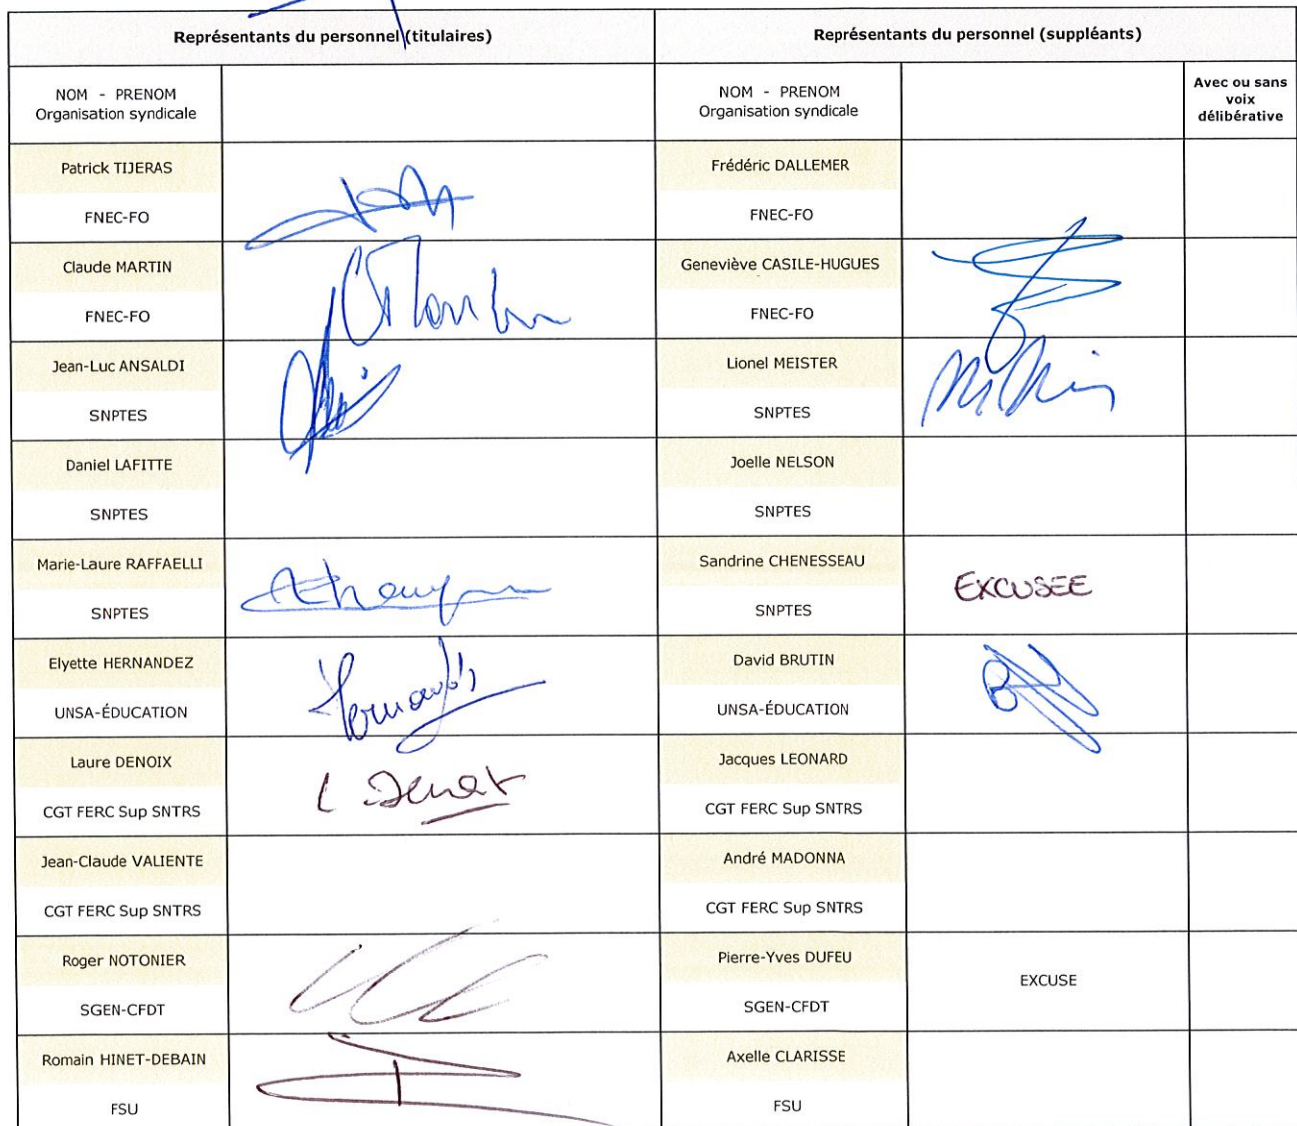 Représentants du personnel (titulaires)
Représentants du personnel (suppléants)
NOM - PRENOM
Organisation syndicale
NOM - PRENOM
Organisation syndicale
Avec ou sans
voix
délibérative
Patrick TIJERAS
FNEC-FO
Frédéric DALLEMER
FNEC-FO
Claude MARTIN
FNEC-FO
Geneviève CASILE-HUGUES
FNEC-FO
Jean-Luc ANSALDI
SNPTES
Lionel MEISTER
SNPTES
Daniel LAFITTE
SNPTES
Joelle NELSON
SNPTES
Marie-Laure RAFFAELLI
SNPTES
Sandrine CHENESSEAU
SNPTES
EXCUSEE
Elyette HERNANDEZ
UNSA-ÉDUCATION
David BRUTIN
UNSA-ÉDUCATION
Laure DENOIX
CGT FERC Sup SNTRS
Jacques LEONARD
CGT FERC Sup SNTRS
Jean-Claude VALIENTE
CGT FERC Sup SNTRS
André MADONNA
CGT FERC Sup SNTRS
Roger NOTONIER
SGEN-CFDT
Pierre-Yves DUFEU
SGEN-CFDT
EXCUSE
Romain HINET-DEBAIN
FSU
Axelle CLARISSE
FSU